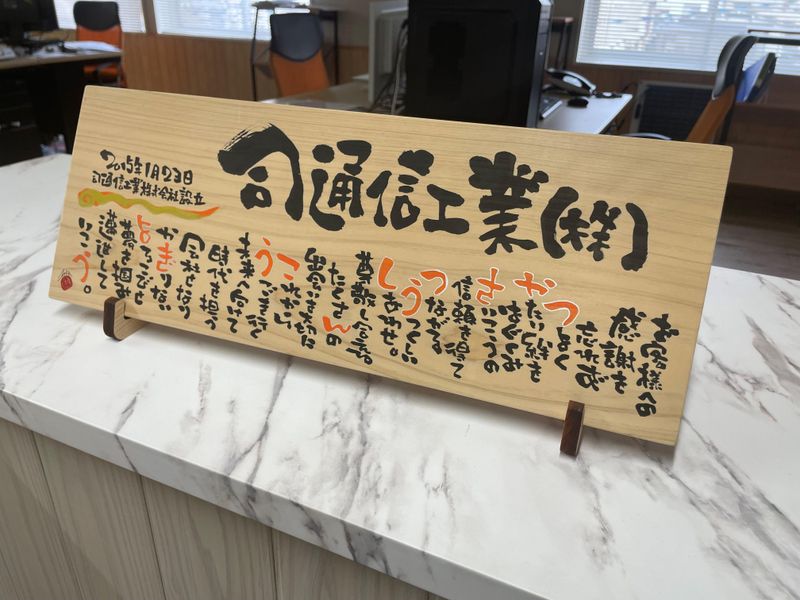 司通信工業(株)
2015年1月23日
司通信工業株式会社設立
お客様への
感謝を
忘れず
つよく
かたい絆を
はぐくみ
さいこうの
信頼を得て
つながる
うつくしい
しあわせ。
たくさんの
出会いを大切に
これから
うごき行く
未来へ向けて
時代を担う
会社となり
かぎりない
よろこびと
夢を掴み
邁進して
いこう。